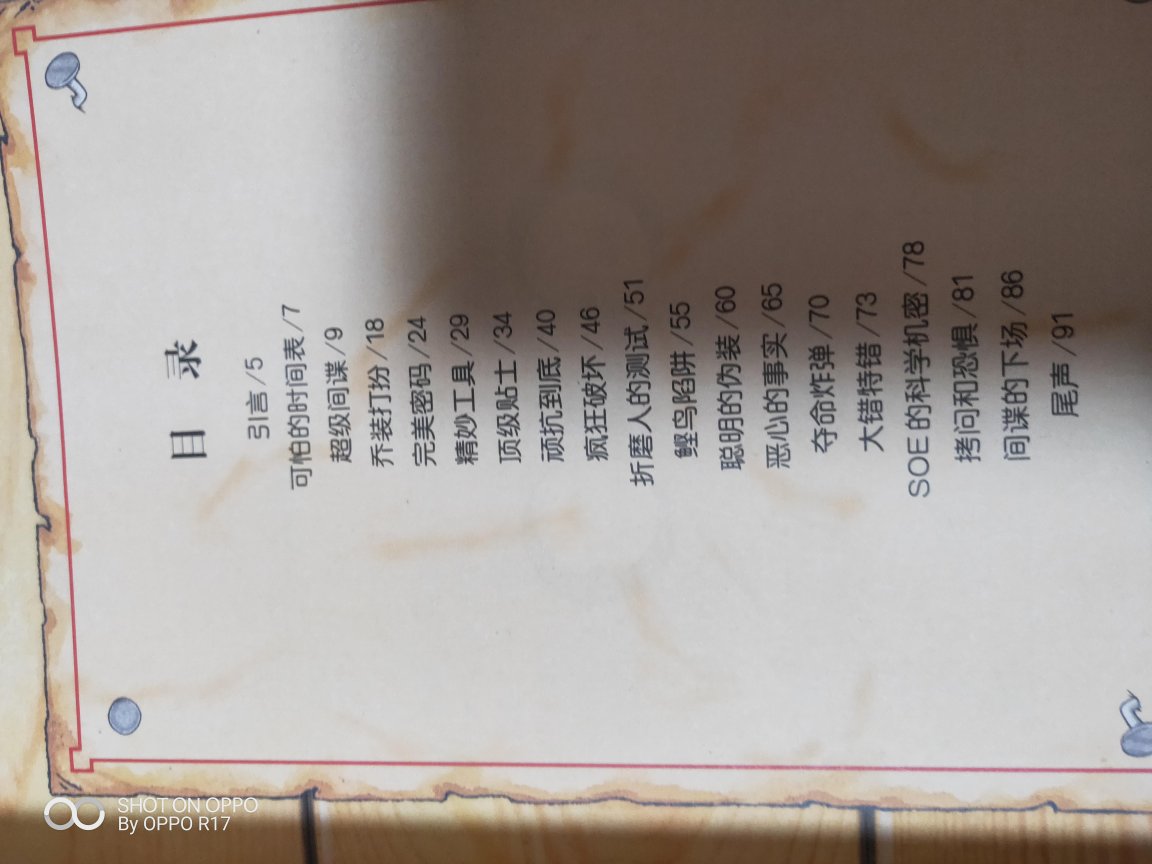 目 录
引言/5
可怕的时间表/7
超级间谍/9
乔装打扮/18
完美密码/24
精妙工具/29
顶级贴士/34
顽抗到底/40
疯狂破坏/46
折磨人的测试/51
鲣鸟陷阱/55
聪明的伪装/60
恶心的事实/65
夺命炸弹/70
大错特错/73
SOE的科学机密/78
拷问和恐惧/81
间谍的下场/86
尾声/91
SHOT ON OPPO
By OPPO R17